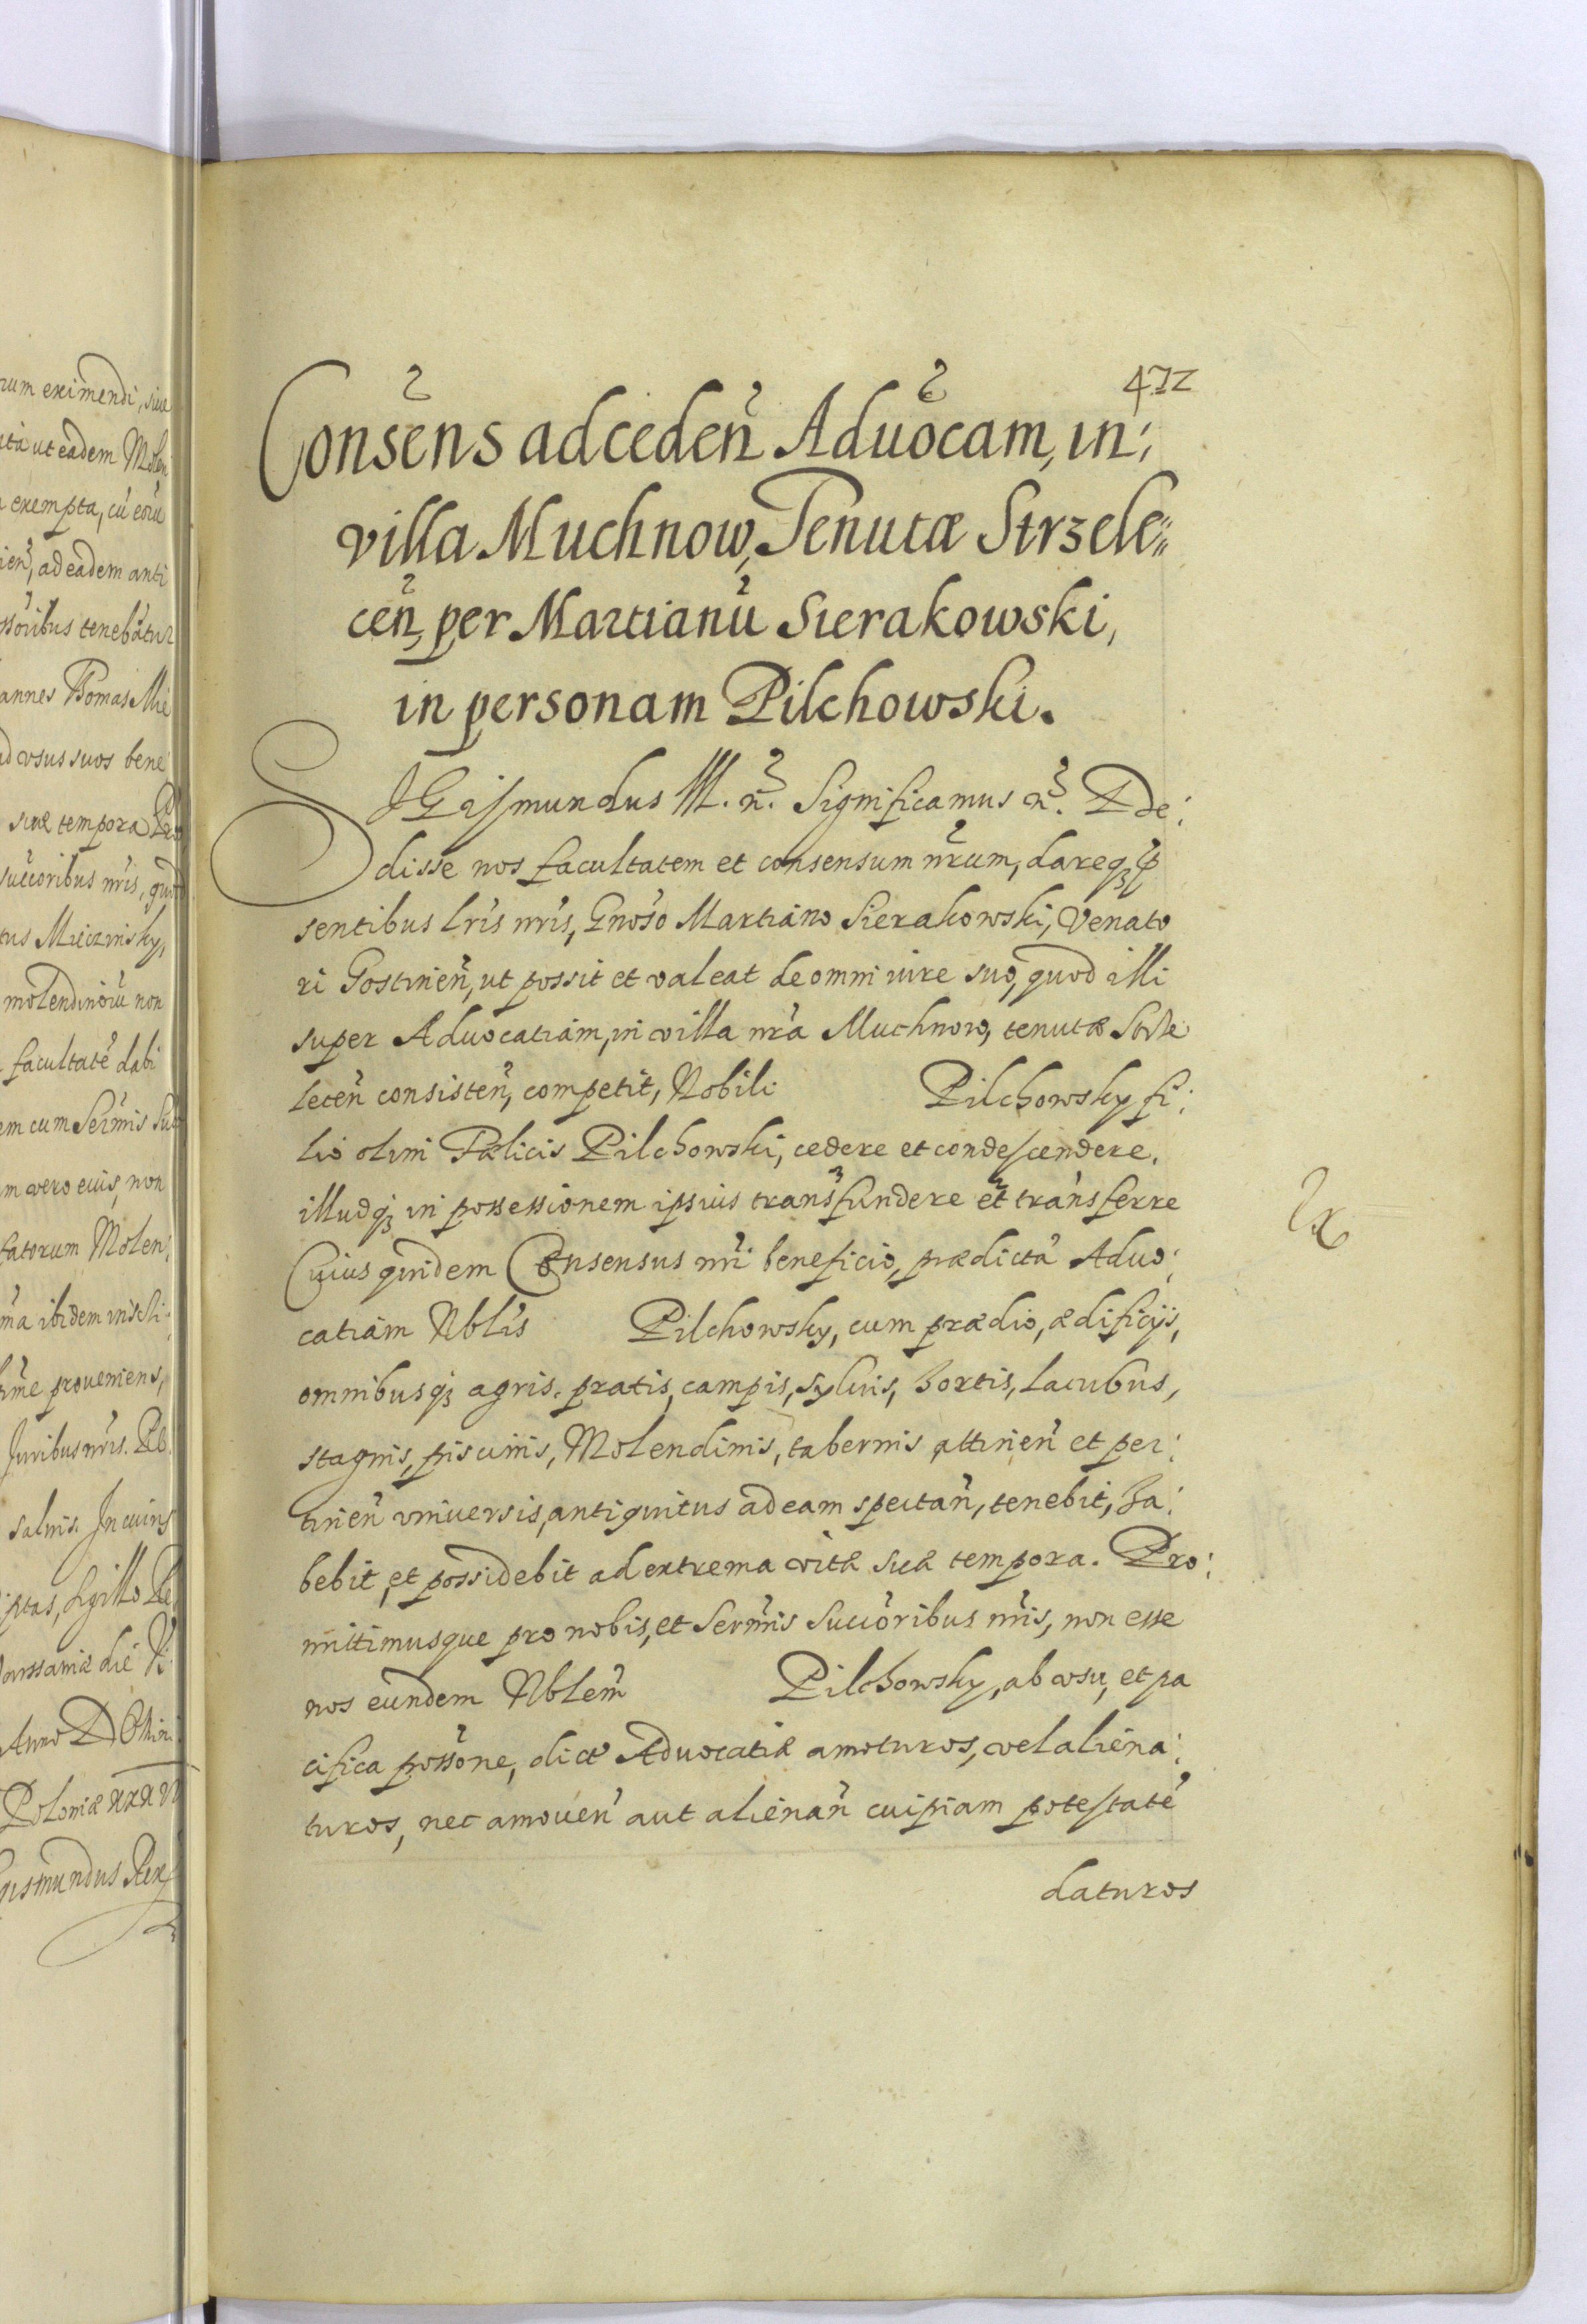 rum eximendi, siue
ita ut eadem Molen
exempta, cũ eorũ
ien̄, ad eadem anti
ssoribus tenebãtur
annes Thomas Mie
ad vsus suos bene
suæ tempora Pro
succoribus nr̃is, quod
tus Mieczinsky,
molendinorũ non
facultatẽ dabi
em cum Ser̃mis Suc
m vero eius, non
fatorum Molen:
ma ibidem
proueniens,
Juribus nr̃is.
saluis. In cuius
iptas, Sigillo Re
arssauiæ die
Anno DOMini
Poloniæ
gismundus Rex
472
Consens ad ceden̄ Aduocam, in:
villa Muchnow, Tenutæ Strzele=
cen̄, per Martianũ Sierakowski,
in personam Pilchowski.
SIGismundus III. n̄. Significamus n̄. De:
disse nos facultatem et consensum nr̃um, dareq3 p̃
sentibus lr̃is nr̃is, Gnoso Martiano Sierakowski, Venato
ri Gostinen̄, ut possit et valeat de omni iure suo, quod illi
super Aduocatiam, in villa nr̃a Muchnow, tenutæ Strze
lecen̄ consisten̄, competit, Nobili Pilchowsky fi:
lio olim Fælicis Pilchowski, cedere et condescendere,
illudq3 in possessionem ipsius transfundere et transferre
Cuius quidem Consensus nr̃i beneficio, prædictã Aduo:
catiam Nblis Pilchowsky, cum prædio, ædificijs,
omnibusq3 agris, pratis, campis, syluis, hortis, lacubus,
stagnis, piscinis, Molendinis, tabernis attinen̄ et per:
tinen̄ vniuersis, antiquitus ad eam spectan̄, tenebit, ha:
bebit, et possidebit ad extrema vitæ suæ tempora. Pro:
mittimusque pro nobis, et Ser̃mis Succoribus nr̃is, non esse
nos eundem Nblem Pilchowsky, ab vsu, et pa
cifica possone, dictæ Aduocatiæ amoturos, vel aliena:
turos, nec amouen̄ aut alienan̄ cuipiam potestatẽ
daturos